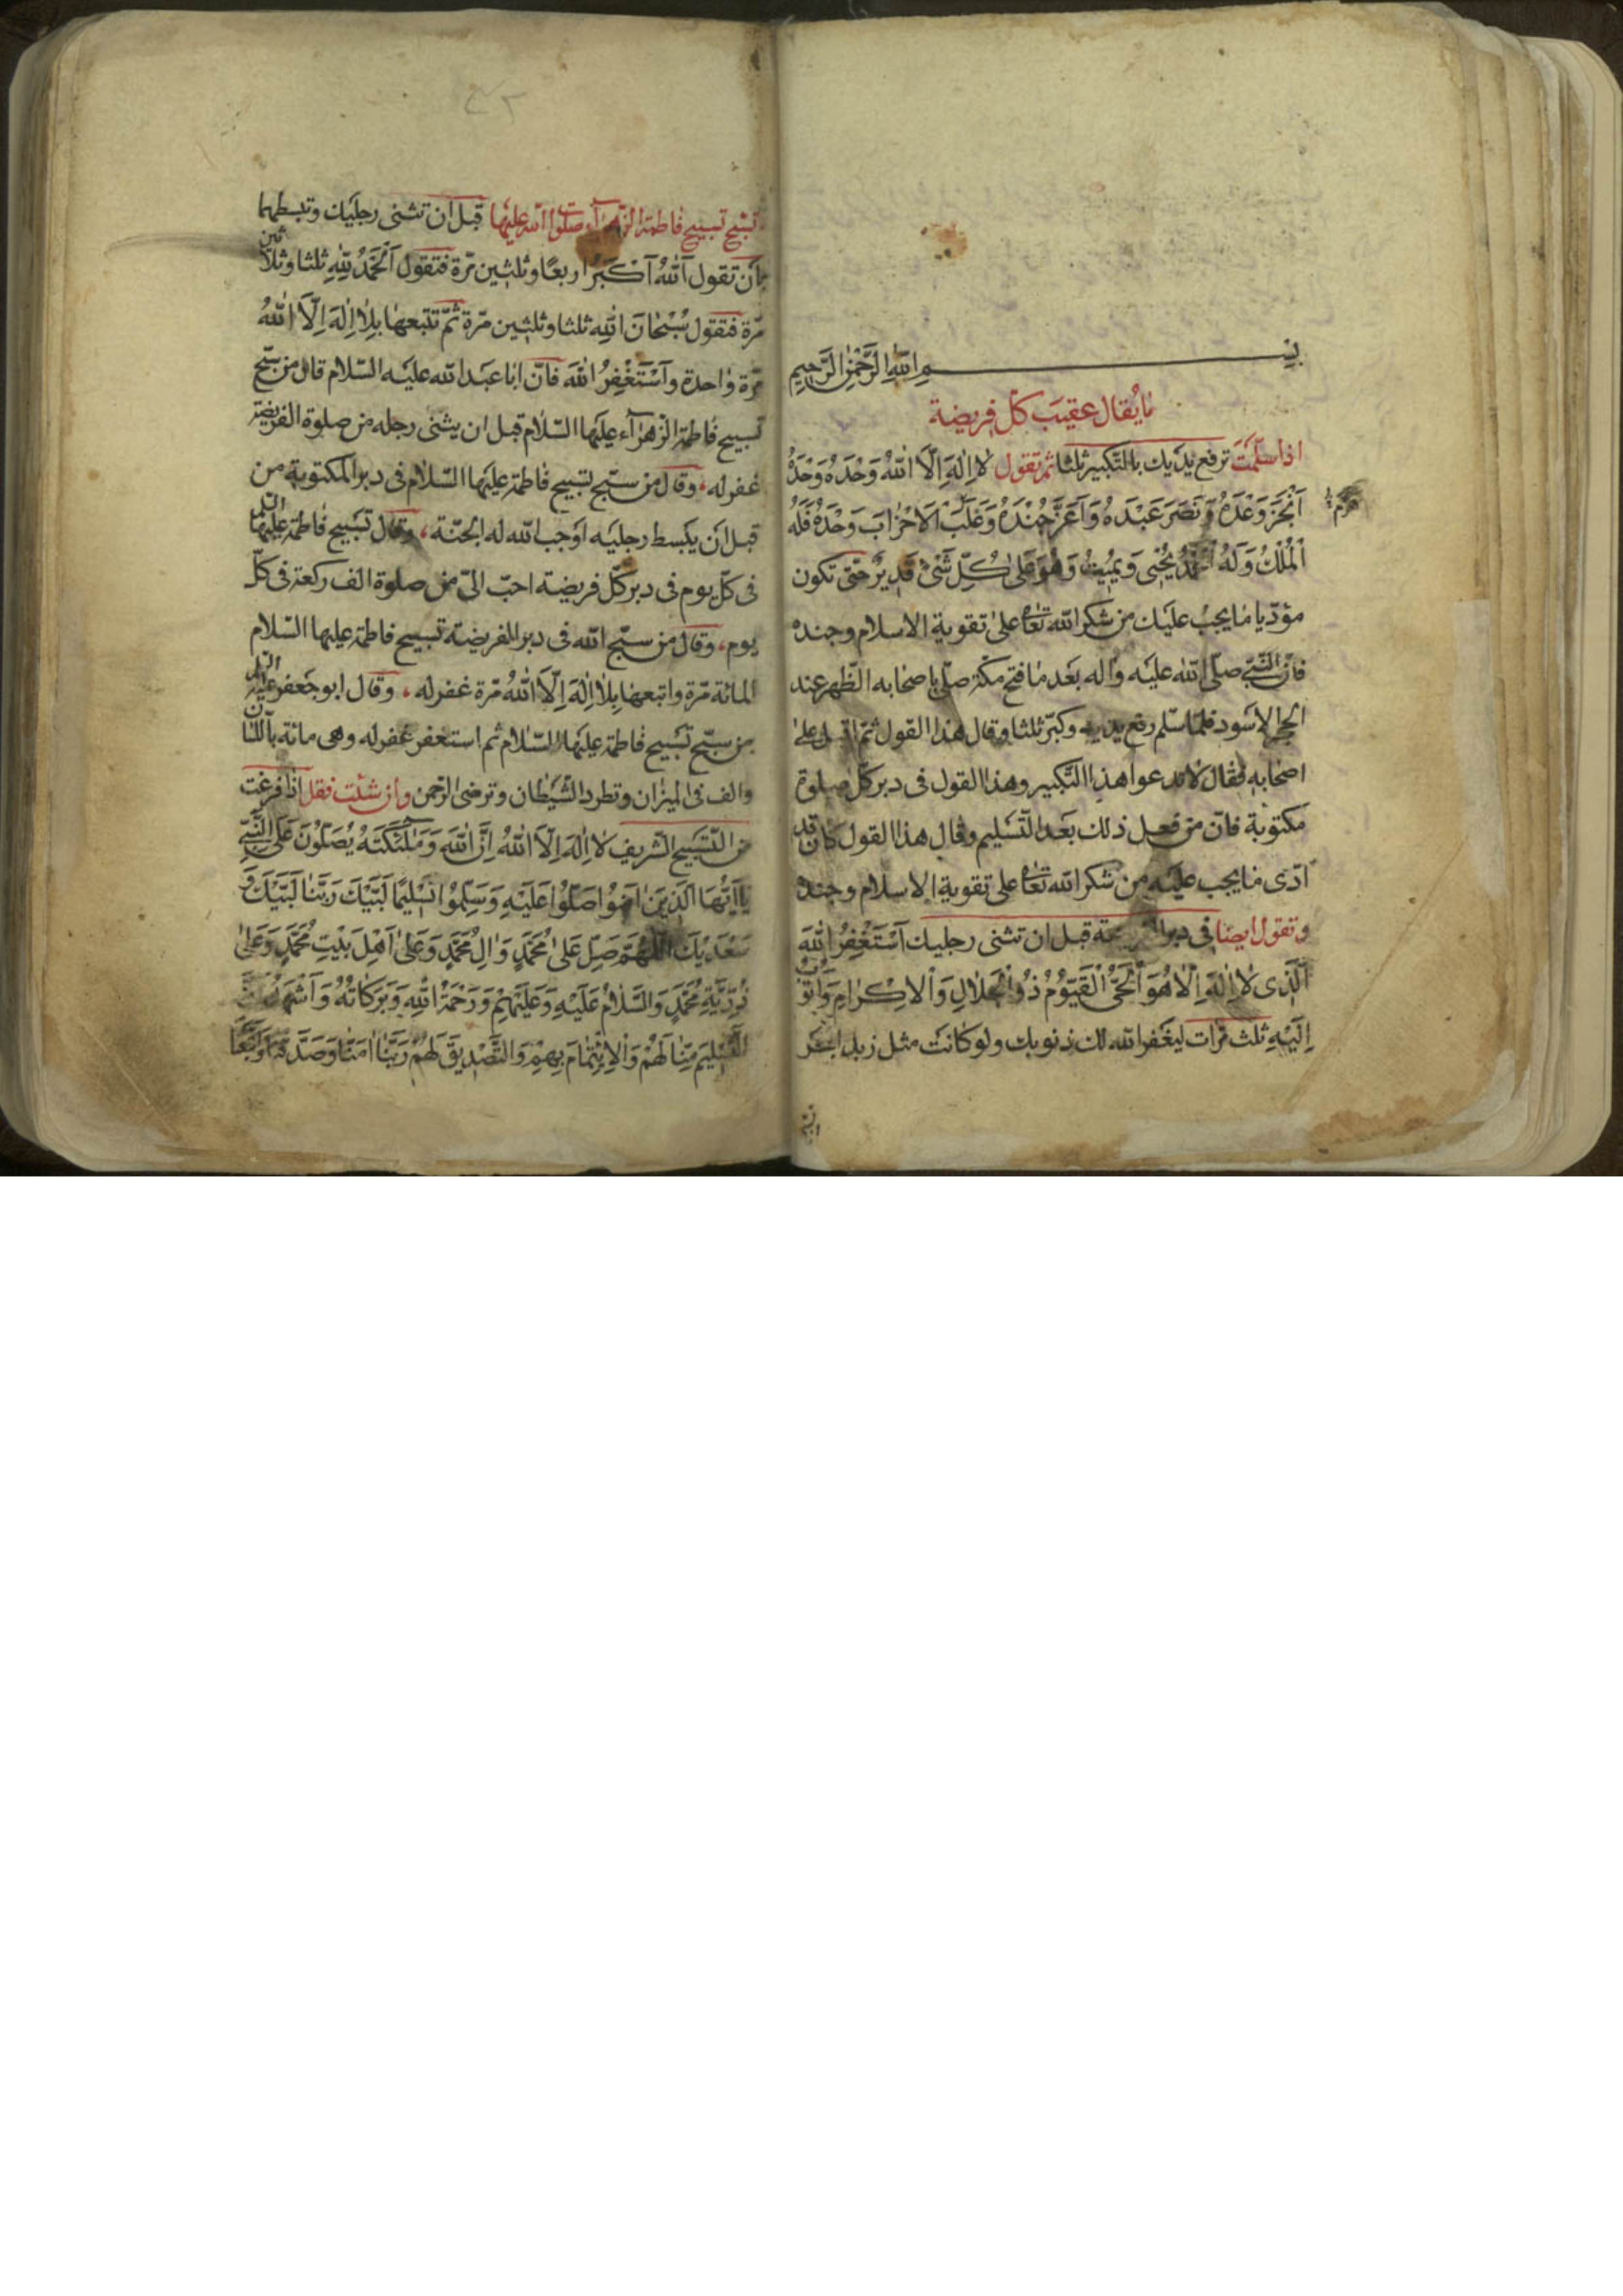 بسم الله الرحمن الرحيم
ما يقال عقيب كل فريضة
اذا سلّمت ترفع يديك بالتّكبير ثلثا ثم تقول لا اِلٰهَ اِلَّا اللهُ وَحْدَهُ وَحْدَهُ
اَنْجَزَ وَعْدَهُ وَنَصَرَ عَبْدَهُ وَاَعَزَّ جُنْدَهُ وَغَلَبَ الْاَحْزابَ وَحْدَهُ فَلَهُ
هزم
اَلْمُلْكُ وَلَهُ الْحَمْدُ يُحْيى وَيُمِيتُ وَهُوَ عَلىٰ كُلِّ شَىْءٍ قَدِيرٌ حتّى تكون
مؤدّيا ما يجب عليك من شكر الله تعا على تقوية الاسلام وجنده
فانّ النّبىّ صلّى الله عليه واله بعد ما فتح مكّة صلّى باصحابه الظّهر عند
الحجر الاسود فلمّا سلّم رفع يديه وكبّر ثلثا وقال هذا القول ثمّ اقبل على
اصحابه فقال لا تدعوا هذا التّكبير وهذا القول فى دبر كلّ صلوة
مكتوبة فانّ من فعل ذلك بعد التّسليم وقال هذا القول كان قد
ادّى ما يجب عليه من شكر الله تعا على تقوية الاسلام وجنده
وتقول ايضا فى دبر قبل ان تثنى رجليك اَسْتَغْفِرُ اللهَ
اَلَّذى لا اِلٰهَ اِلّا هُوَ اَلْحَىُّ الْقَيّوُمُ ذُو الْجَلالِ وَالْاِكْرامِ وَاَتوُبُ
اِلَيْهِ ثلث مرّات ليغفر الله لك ذنوبك ولو كانت مثل زبد البحر
تسبيح فاطمة الزّهرآء صلوات الله عليها قبل ان تثنى رجليك وتبسطهما
بان تقول اَللهُ اَكْبَرُ اربعًا وثلثين مرّة فتقول اَلْحَمْدُ لِلّٰهِ ثلثا وثلاثين
مرّة فتقول سُبْحانَ اللهِ ثلثا وثلثين مرّة ثمّ تتبعها بِلا اِلٰهَ اِلَّا اللهُ
مرّة واحدة وَاَسْتَغْفِرُ اللهَ فانّ ابا عبد الله عليه السّلام قال من سبّح
تسبيح فاطمة الزهرآء عليها السّلام قبل ان يثنى رجله من صلوة الفريضة
غفر له، وقال من سبّح تسبيح فاطمة عليها السّلام فى دبر المكتوبة من
قبل ان يبسط رجليه اوجب الله له الجنّة، وقال تسبيح فاطمة عليها السّلام
فى كلّ يوم فى دبر كلّ فريضة احبّ الىّ من صلوة الف ركعة فى كلّ
يوم، وقال من سبّح الله فى دبر الفريضة تسبيح فاطمة عليها السّلام
المائة مرّة واتبعها بِلا اِلٰهَ اِلَّا اللهُ مرّة غفر له، وقال ابو جعفر عليه السّلام
من سبّح تسبيح فاطمة عليها السّلام ثم استغفر غفر له وهى مائة باللسان
والف فى الميزان وتطرد الشّيطان وترضى الرحمن وان شئت فقل اذا فرغت
من التّسبيح الشّريف لا اِلٰهَ اِلَّا اللهُ اِنَّ اللهَ وَمَلٰئِكَتَهُ يُصَلّوُنَ عَلَى النَّبِىِّ
يا اَيُّهَا الَّذينَ اٰمَنوُا صَلّوُا عَلَيْهِ وَسَلِّموُا تَسْليمًا لَبَّيْكَ رَبَّنا لَبَّيْكَ وَ
سَعْدَيْكَ اَللّٰهُمَّ صَلِّ عَلىٰ مُحَمَّدٍ وَاٰلِ مُحَمَّدٍ وَعَلىٰ اَهْلِ بَيْتِ مُحَمَّدٍ وَعَلىٰ
ذُرِّيَّةِ مُحَمَّدٍ وَالسَّلامُ عَلَيْهِ وَعَلَيْهِمْ وَرَحْمَةُ اللهِ وَبَرَكاتُهُ وَاَشْهَدُ اَنَّ
التَّسْليمَ مِنّا لَهُمْ وَالْاِيْتِمامَ بِهِمْ وَالتَّصْديقَ لَهُمْ رَبَّنا اٰمَنّا وَصَدَّقْنا وَاتَّبَعْنا